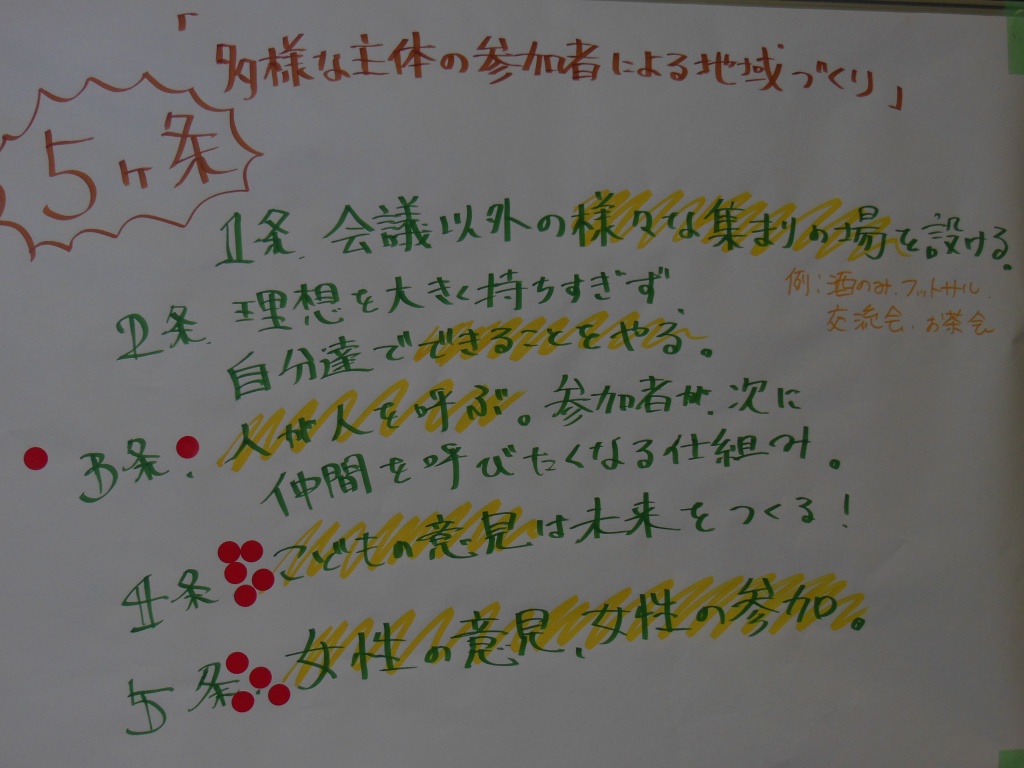 「多様な主体の参加者による地域づくり」
5ヶ条
1条. 会議以外の様々な集まりの場を設ける。
例:酒のみ、フットサル、
交流会、お茶会
2条. 理想を大きく持ちすぎず、
自分達でできることをやる。
3条. 人が人を呼ぶ。参加者が、次に
仲間を呼びたくなる仕組み。
4条 こどもの意見は未来をつくる!
5条. 女性の意見、女性の参加。